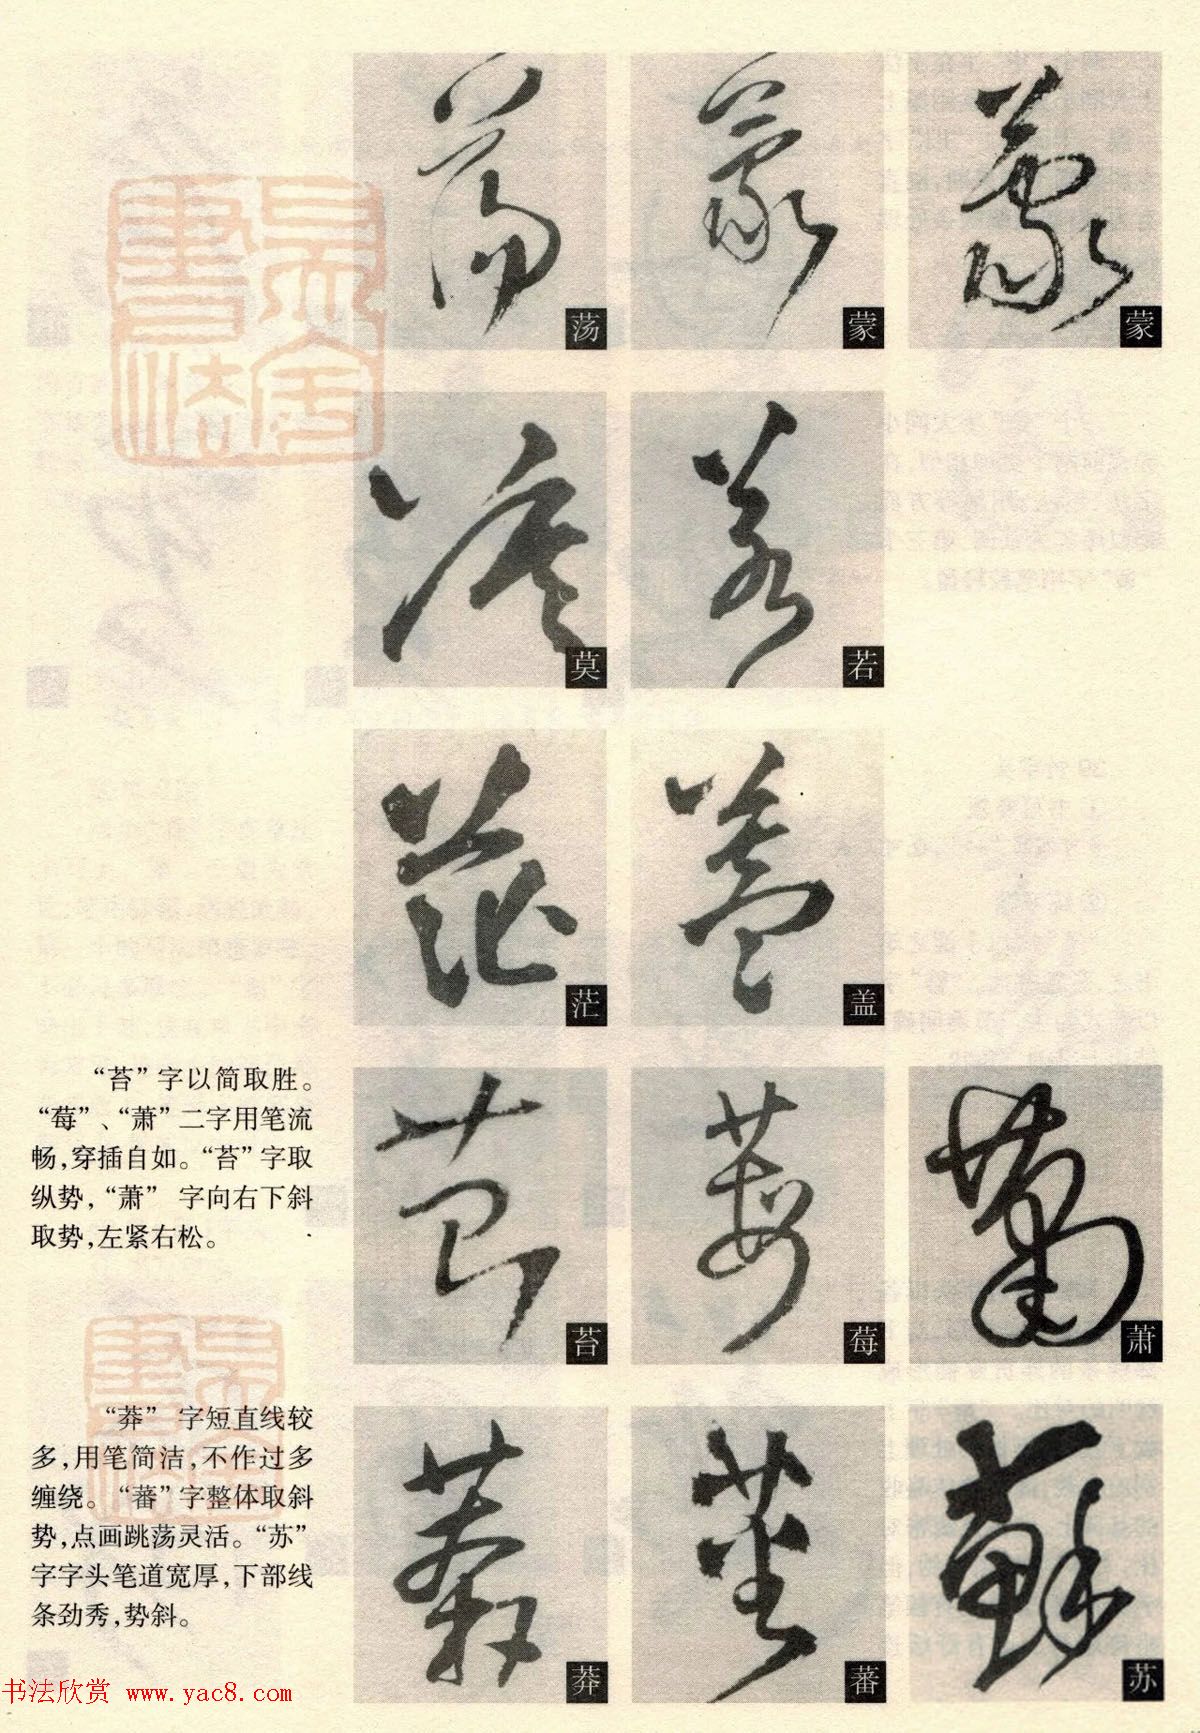 荡
蒙
蒙
莫
若
茫
盖
“苔”字以简取胜。
“莓”、“萧”二字用笔流
畅，穿插自如。“苔”字取
纵势，“萧” 字向右下斜
取势，左紧右松。
苔
莓
萧
“莽” 字短直线较
多，用笔简洁，不作过多
缠绕。“蕃”字整体取斜
势，点画跳荡灵活。“苏”
字字头笔道宽厚，下部线
条劲秀，势斜。
莽
蕃
苏
书法欣赏 www.yac8.com